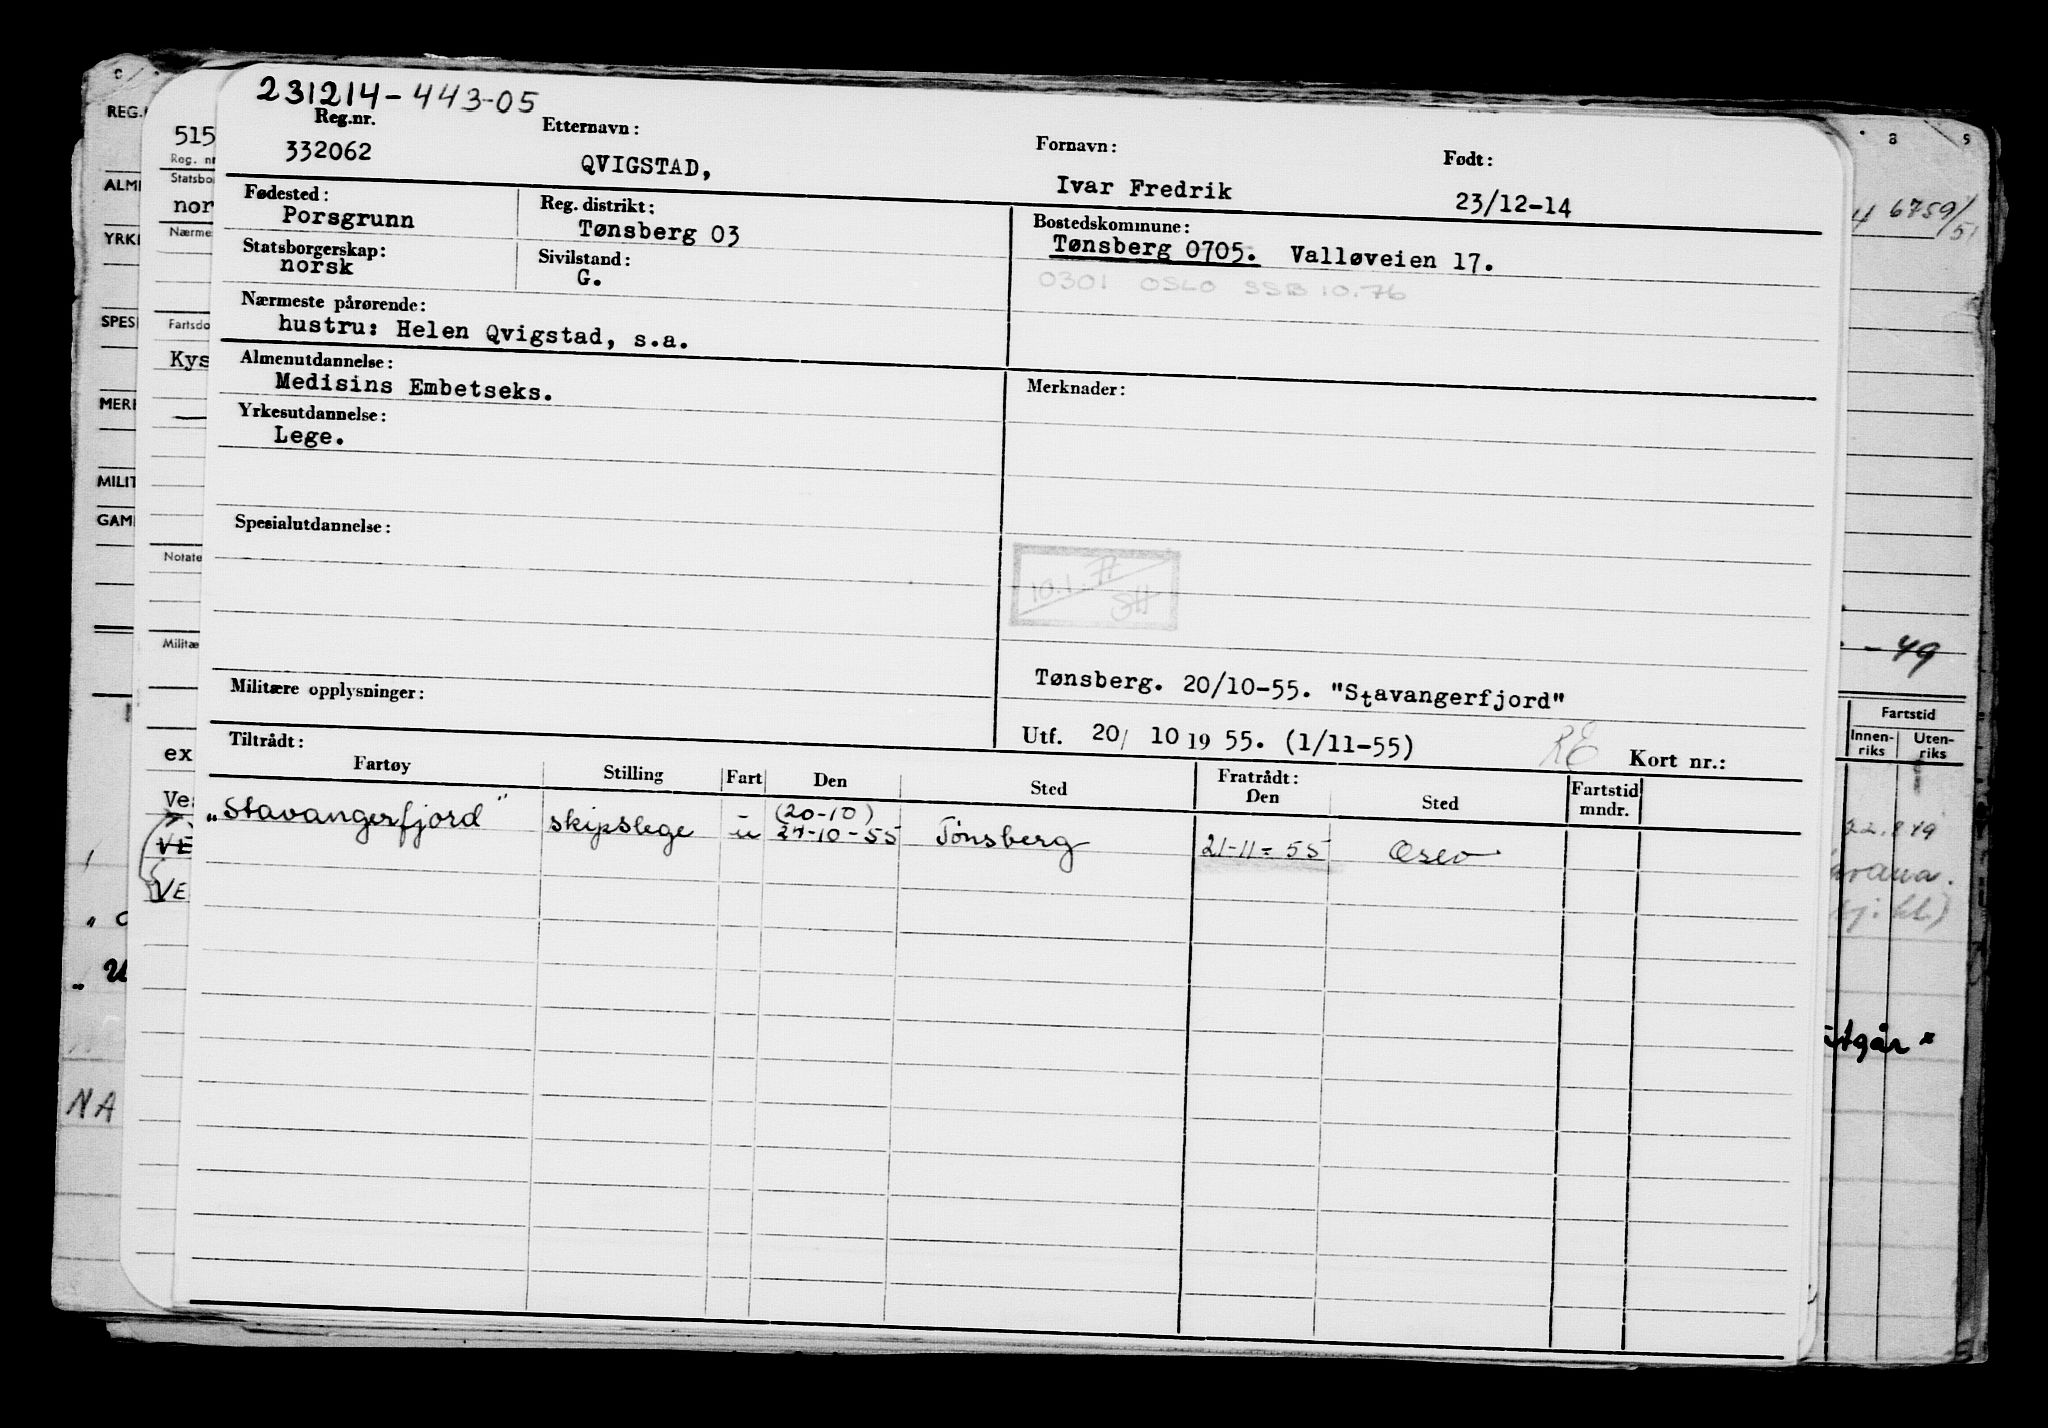 231214-443-05
Reg.nr. Etternavn: Fornavn: Født:
332062 QVIGSTAD, Ivar Fredrik 23/12-14
Fødested: Reg. distrikt: Bostedskommune:
Porsgrunn Tønsberg 03 Tønsberg 0705. Valløveien 17.
Statsborgerskap: Sivilstand: 0301 OSLO SSB 10.76
norsk G.
Nærmeste pårørende:
hustru: Helen Qvigstad, s.a.
Almenutdannelse: Merknader:
Medisins Embetseks.
Yrkesutdannelse:
Lege.
Spesialutdannelse:
10.1.77
SH
Militære opplysninger: Tønsberg. 20/10-55. "Stavangerfjord"
Utf. 20/ 10 19 55. (1/11-55) RE Kort nr.:
Tiltrådt: Fratrådt:
Fartøy Stilling Fart Den Sted Den Sted Fartstid mndr.
"Stavangerfjord" skipslege u (20-10) Tønsberg 21-11-55 Oslo
24-10-55
REG.
515
Reg. nr
Statsbo
ALM
nor
Nærme
YRK
Fartsdo
SPES
Kys
MER
MILIT
GAM
Notate
Militæ
ex
Ve
VE
VE
NA
a s
6759/51
- 49
Fartstid
Innen-riks Uten-riks